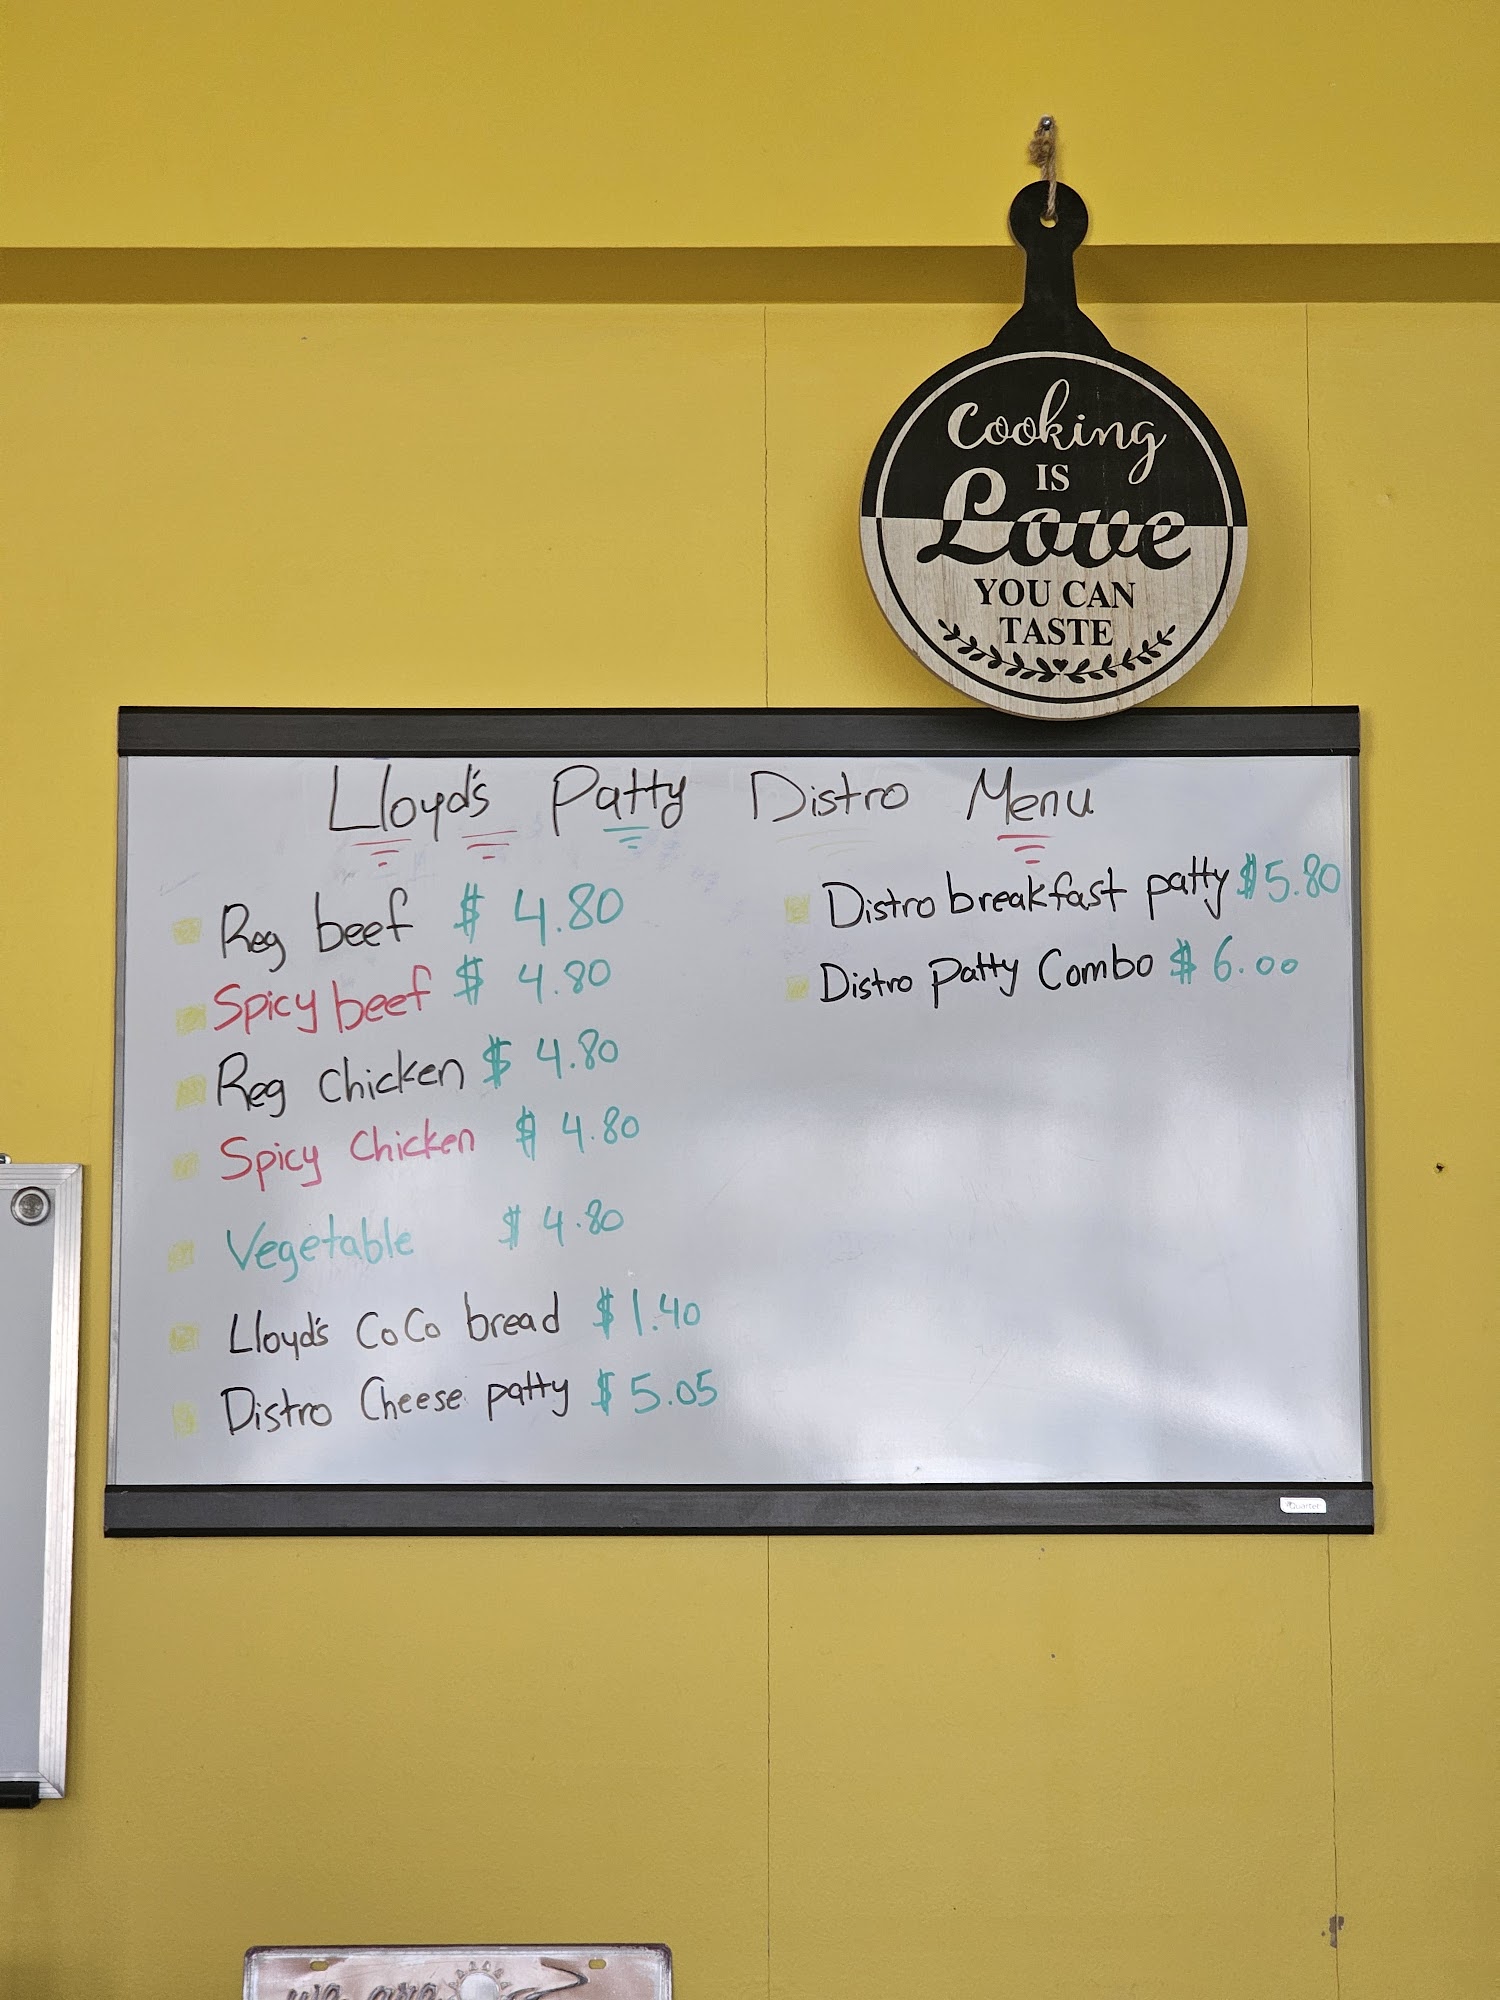 Cooking
IS
Love
YOU CAN
TASTE
Lloyd's Patty Distro Menu
Reg beef $ 4.80
Spicy beef $ 4.80
Reg Chicken $ 4.80
Spicy Chicken $ 4.80
Vegetable $ 4.80
Lloyd's CoCo bread $ 1.40
Distro Cheese patty $ 5.05
Distro breakfast patty $ 5.80
Distro Patty Combo $ 6.00
Quartet
we are